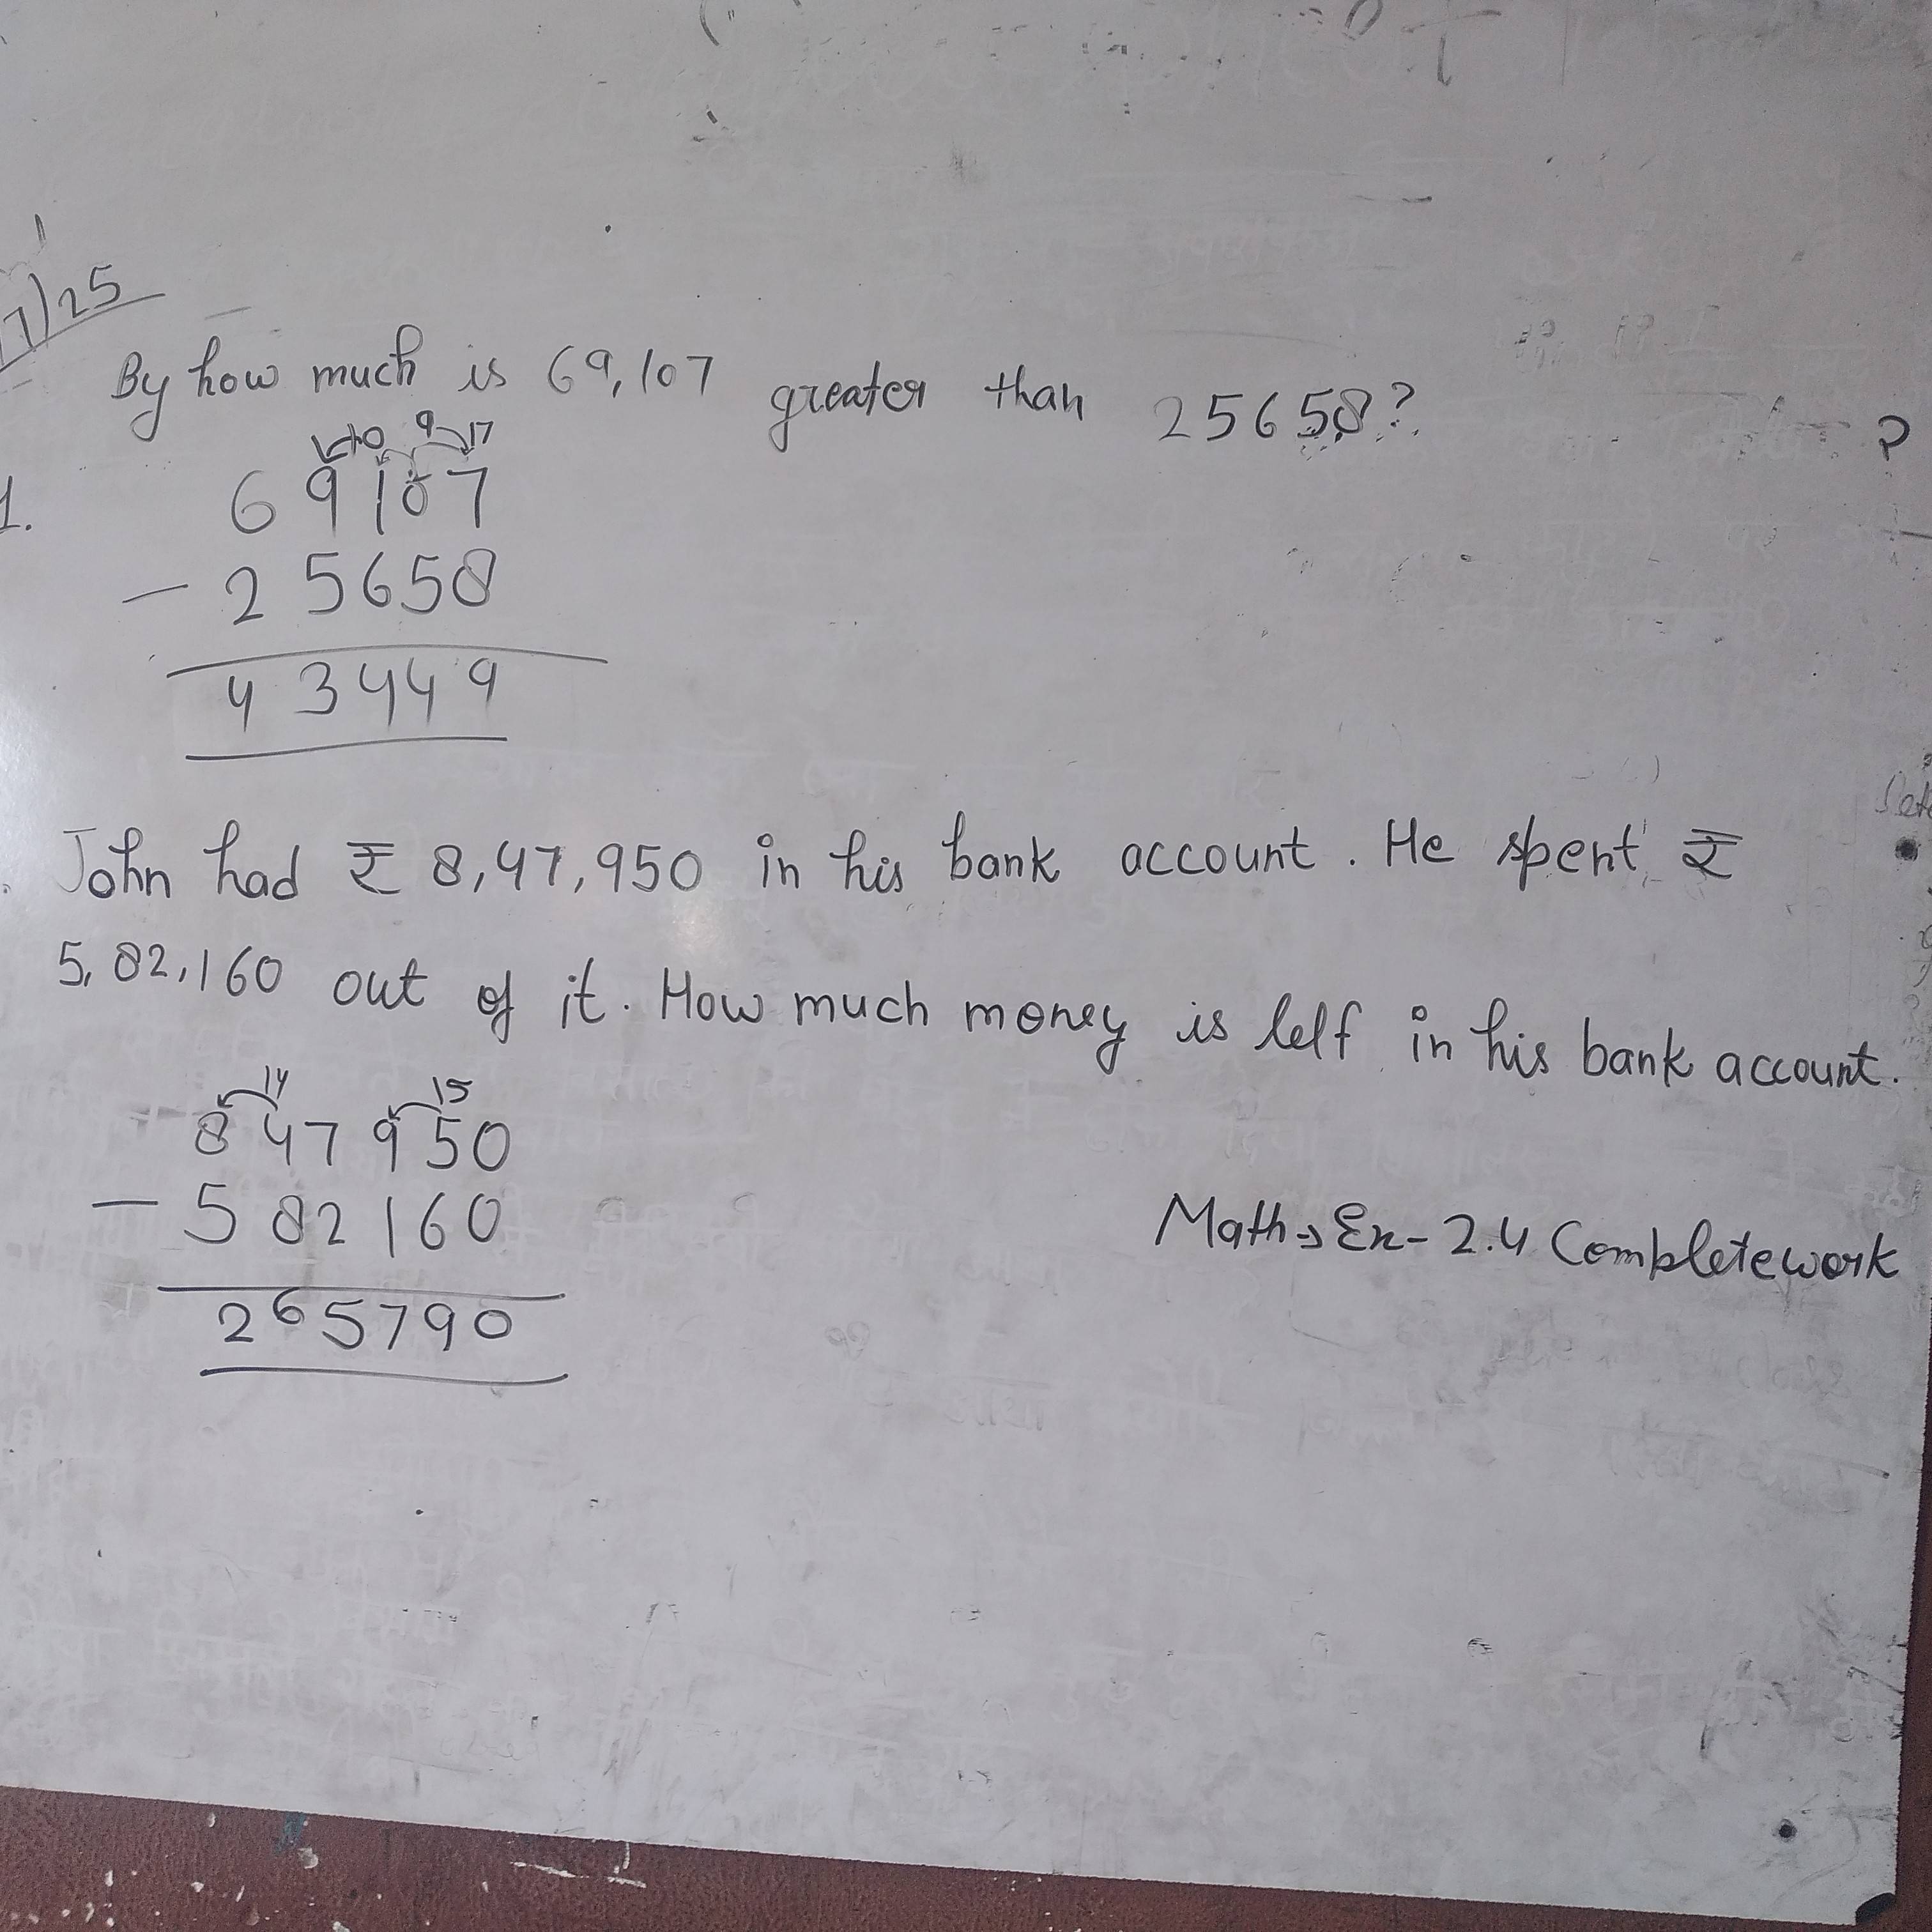 7/25
By how much is 69,107 greater than 25658?
?
10 9 17
1. 69107
- 25658
43449
John had ₹ 8,47,950 in his bank account. He spent ₹
5,82,160 out of it. How much money is lelf in his bank account.
14 15
847950
- 582160
265790
Math → Ex- 2.4 Complete work